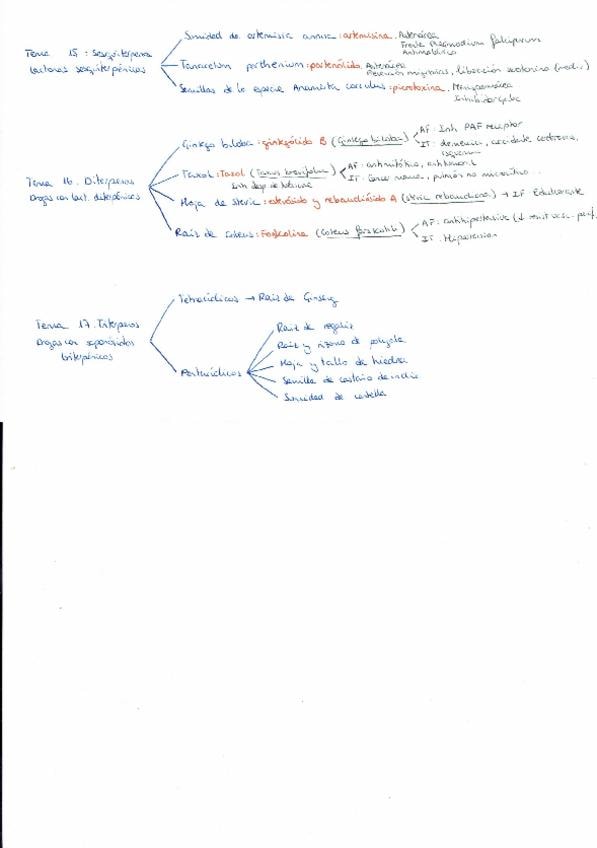 Tema 15: Sesquiterpenos
Lactonas sesquiterpénicas
Sumidad de artemisia annua: artemisina. Asterácea
Frente Plasmodium falciparum
Antimalárico
Tanacetum parthenium: partenólido. Asterácea
Prevención migrañas, liberación serotonina
Semillas de la especie Anamirta coculus: picrotoxina. Menispermácea
Inhibidor gaba
Tema 16. Diterpenos
Drogas con lact. diterpénicas
Ginkgo biloba: ginkgólido B (Ginkgo biloba)
AF: Inh PAF receptor
IT: demencia, accidente cerebrovas,
isquemia
Taxol: Taxol (Taxus brevifolia)
AF: antimitótico, antitumoral
IT: Cáncer mama, pulmón no microcítico...
Hoja de stevia: esteviósido y rebaudiósido A (stevia rebaudiana) → IF. Edulcorante
Raíz de Coleus: Foskolina (Coleus forskohlii)
AF: antihipertensiva (↓ resist vasc. perif.)
IT: Hipertensión
Tema 17. Triterpenos
Drogas con saponósidos
triterpénicos
Tetracíclicos → Raíz de Ginseng
Pentacíclicos
Raíz de regaliz
Raíz y rizoma de polígala
Hoja y tallo de hiedra
Semilla de castaño de indias
Sumidad de centella